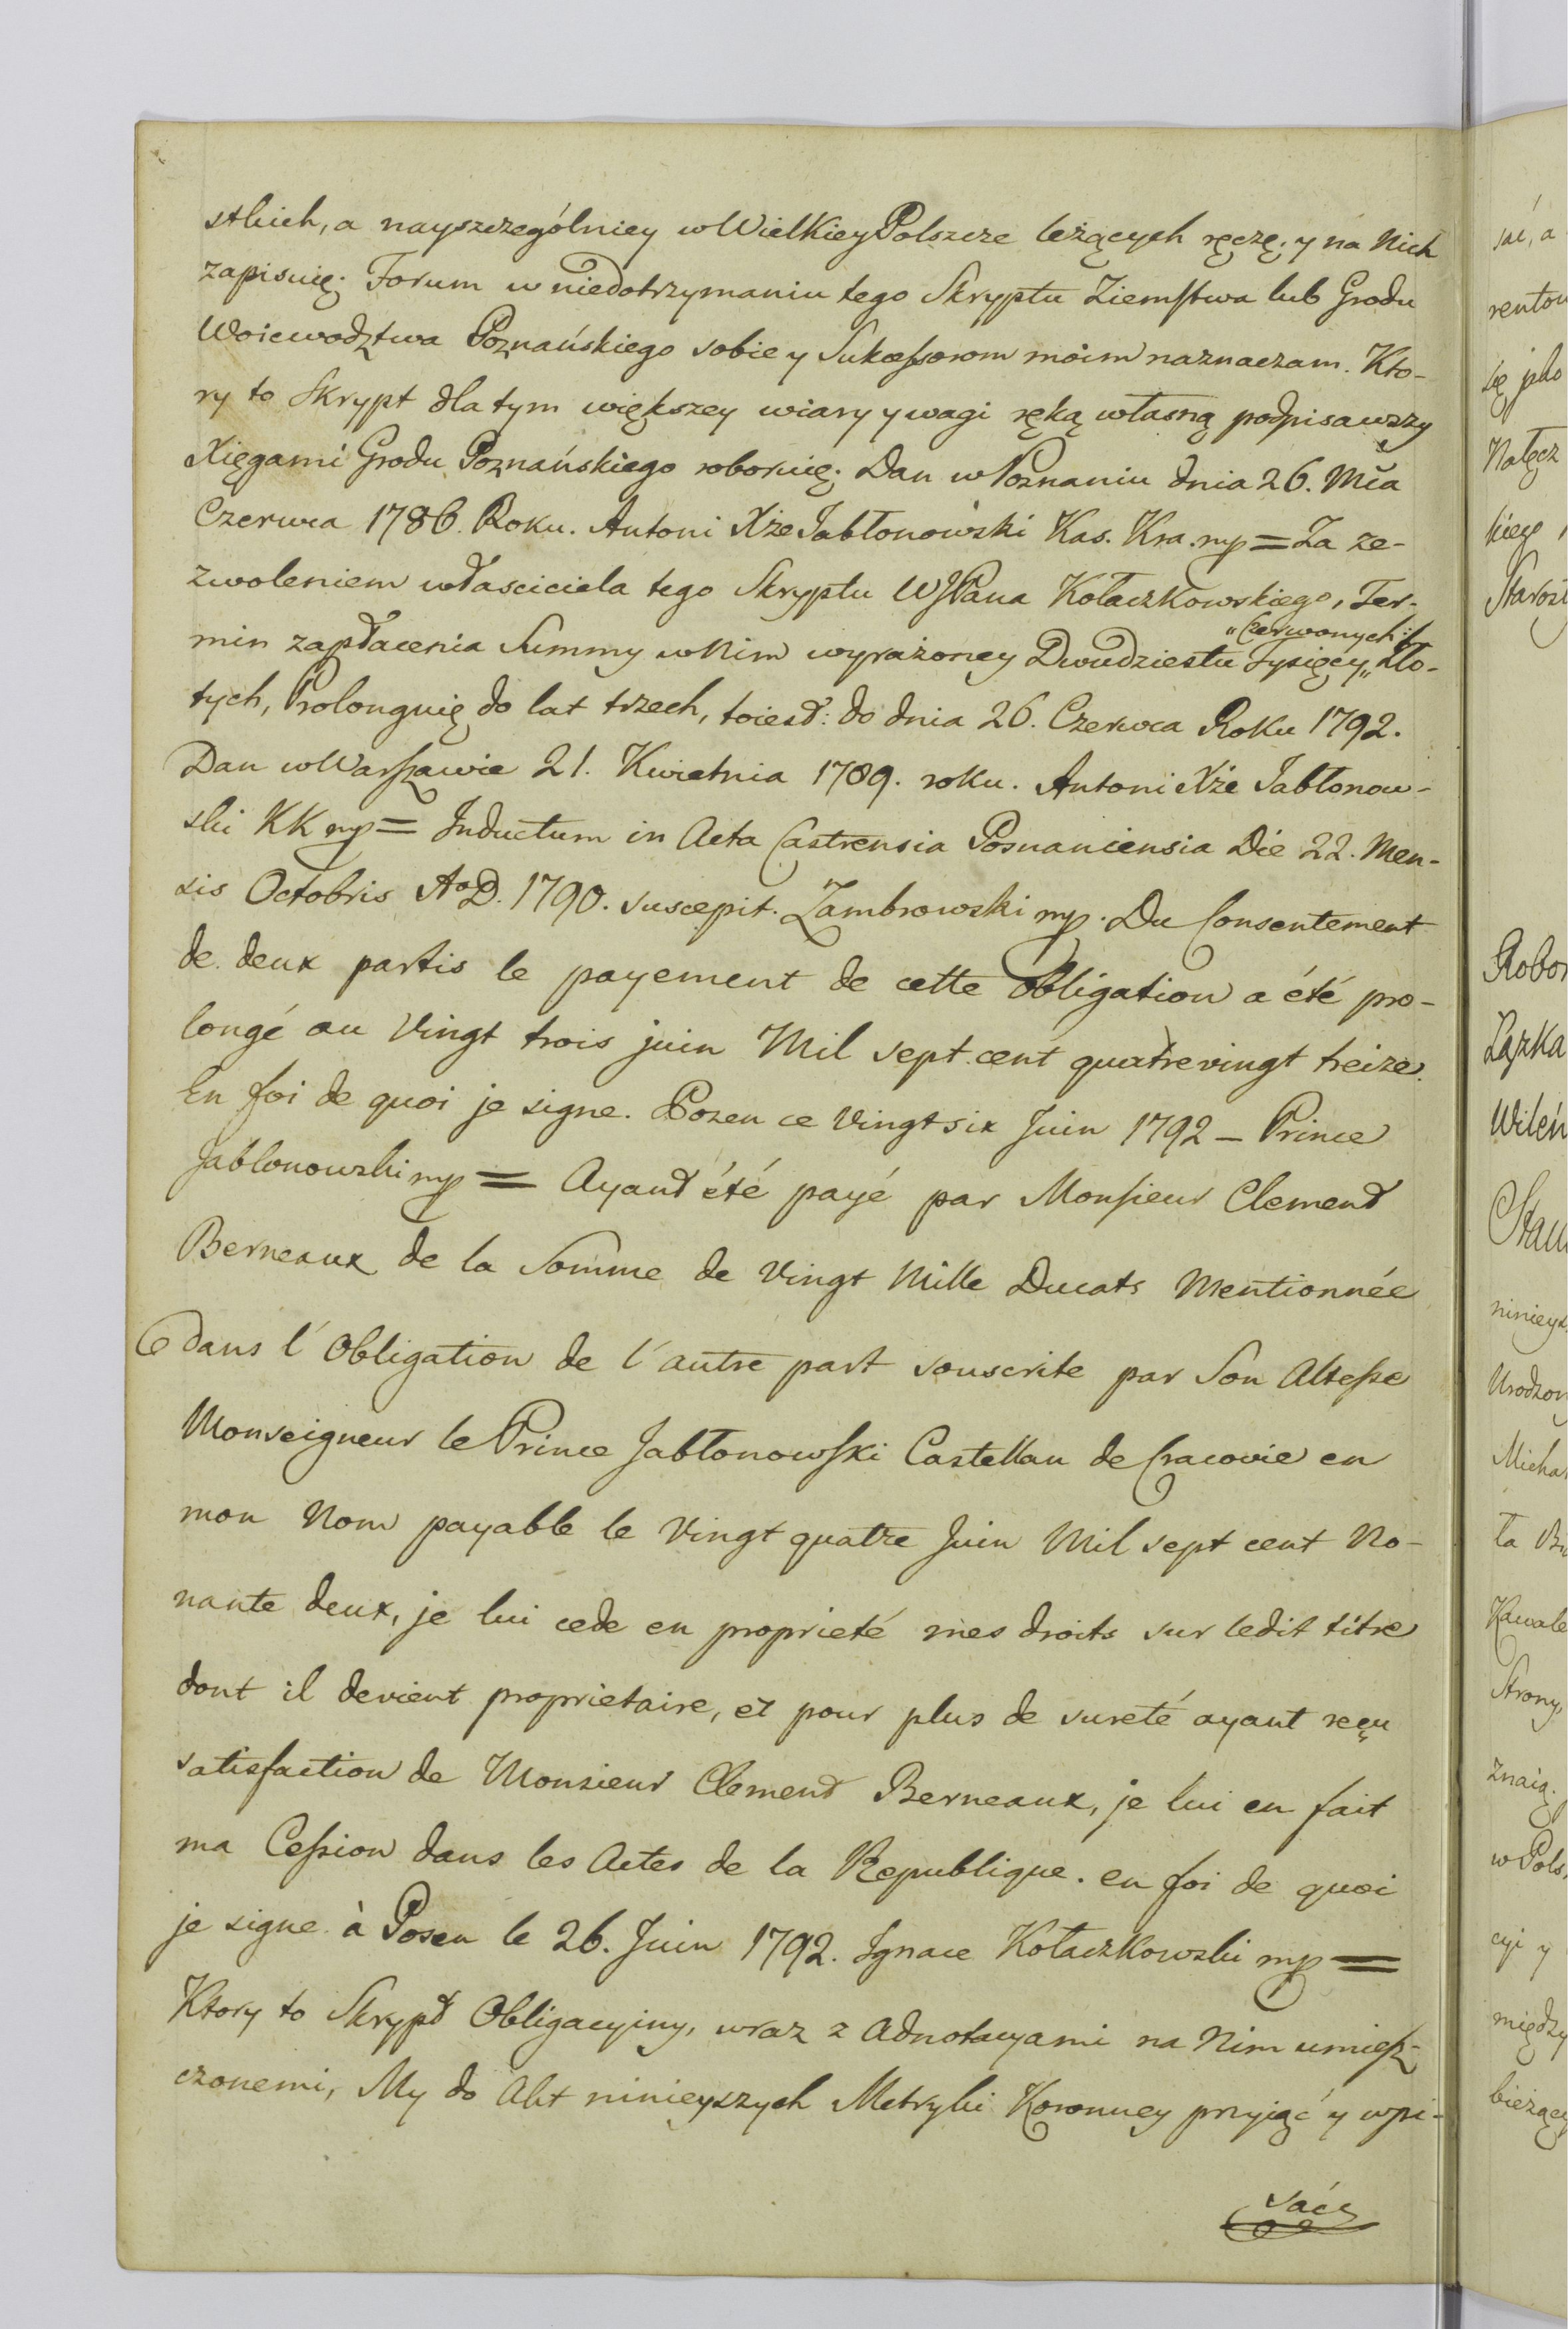 stkich, a nayszczególniey w Wielkiey Polszcze leżących ręczę, y na Nich
zapisuię. Forum w niedotrzymaniu tego Skryptu Ziemstwa lub Grodu
Woiewodztwa Poznańskiego sobie y Sukcessorom moim naznaczam. Kto-
ry to Skrypt dla tym większey wiary y wagi ręką własną podpisawszy
Xięgami Grodu Poznańskiego roboruię. Dan w Poznaniu dnia 26. Mca
Czerwca 1786. Roku. Antoni Xże Jabłonowski Kas. Kra. mp = Za ze-
zwoleniem własciciela tego Skryptu WJPana Kołaczkowskiego, Ter-
min zapłacenia Summy w Nim wyrażoney Dwudziestu Tysięcy „Czerwonych:/„ Zło-
tych, Prolonguię do lat trzech, toiest: do dnia 26. Czerwca Roku 1792.
Dan w Warszawie 21. Kwietnia 1789. roku. Antoni Xże Jabłonow-
ski KK mp = Inductum in Acta Castrensia Posnaniensia Die 22. Men-
sis Octobris AoD. 1790. suscepit. Zambrowski mp. Du Consentement
de deux partis le payement de cette obligation a été pro-
longé au Vingt trois juin Mil sept cent quatrevingt treize.
En foi de quoi je signe. Pozen ce Vingt six Juin 1792 – Prince
Jablonowski mp = Ayant été payé par Monsieur Clement
Berneaux de la Somme de Vingt Mille Ducats Mentionnée
dans l'Obligation de l'autre part souscrite par Son Altesse
Monseigneur le Prince Jabłonowski Castellan de Cracovie en
mon Nom payable le Vingt quatre Juin Mil sept cent No-
nante deux, je lui cede en proprieté mes droits sur ledit titre
dont il devient proprietaire, et pour plus de sureté ayant reçu
satisfaction de Monsieur Clement Berneaux, je lui en fait
ma Cession dans les Actes de la Republique. en foi de quoi
je signe à Posen le 26. Juin 1792. Ignace Kołaczkowski mp =
Ktory to Skrypt Obligacyiny, wraz z Adnotacyami na Nim umiesz-
czonemi, My do Akt ninieyszych Metryki Koronney przyiąć y wpi-
sać
sać, a
rentow
się jako
Nałęcz
kiego
Starost
Robor
Łązka
Wileń
Stan
ninieys
Urodzon
Michał
ta
Kawale
Strony,
znaią.
w Pols
cyi y
między
bieżący